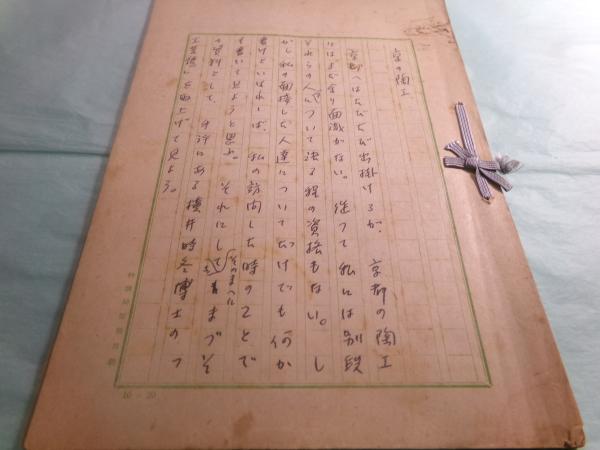 京の陶工
京都へはたびたび出掛けるが、京都の陶工
にはまだ余り面識がない。従つて私には別段
それらの人々について語る程の資格もない。し
かし私の面接した人達についてだけでも何か
書けといはれゝば、私の訪問した時のことで
も書いて見ようと思ふ。それにしても
そのまへに
まづそ
の資料として、手許にある横井時冬博士の「
工芸鏡」を取上げて見よう。
10-20